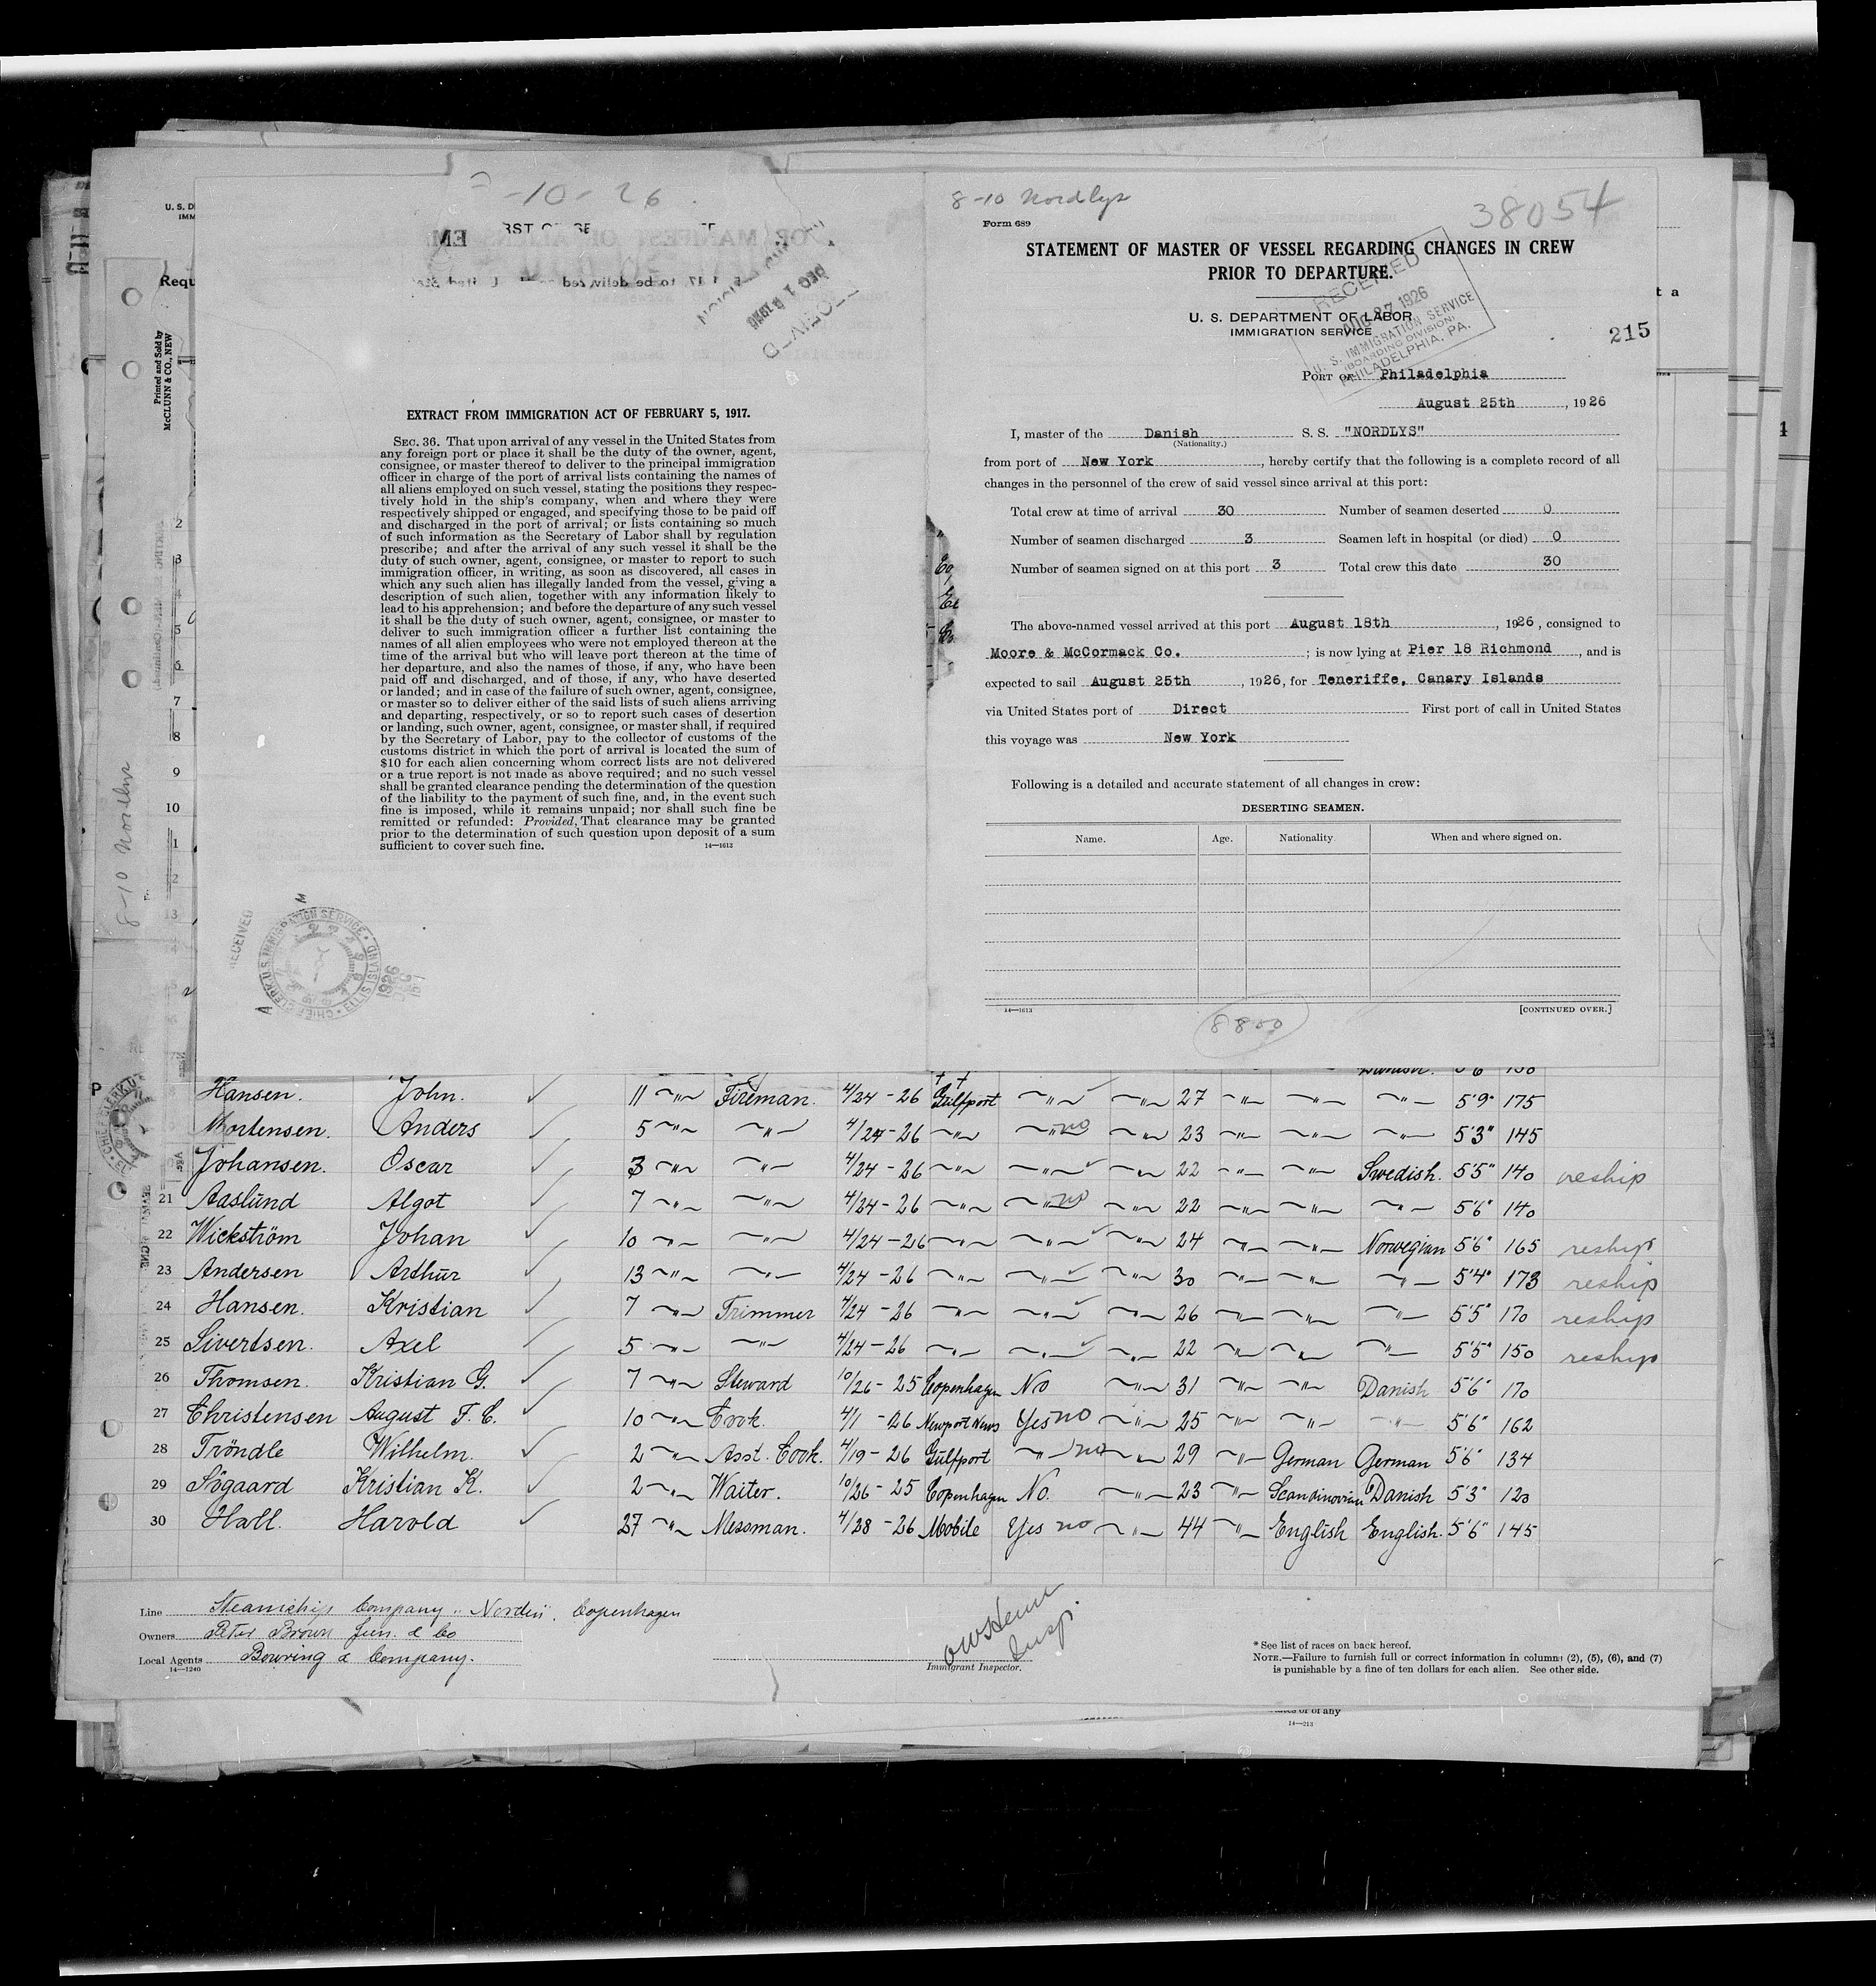 -10-26
EXTRACT FROM IMMIGRATION ACT OF FEBRUARY 5, 1917.
SEC. 36. That upon arrival of any vessel in the United States from
any foreign port or place it shall be the duty of the owner, agent,
consignee, or master thereof to deliver to the principal immigration
officer in charge of the port of arrival lists containing the names of
all aliens employed on such vessel, stating the positions they respec-
tively hold in the ship's company, when and where they were
respectively shipped or engaged, and specifying those to be paid off
and discharged in the port of arrival; or lists containing so much
of such information as the Secretary of Labor shall by regulation
prescribe; and after the arrival of any such vessel it shall be the
duty of such owner, agent, consignee, or master to report to such
immigration officer, in writing, as soon as discovered, all cases in
which any such alien has illegally landed from the vessel, giving a
description of such alien, together with any information likely to
lead to his apprehension; and before the departure of any such vessel
it shall be the duty of such owner, agent, consignee, or master to
deliver to such immigration officer a further list containing the
names of all alien employees who were not employed thereon at the
time of the arrival but who will leave port thereon at the time of
her departure, and also the names of those, if any, who have been
paid off and discharged, and of those, if any, who have deserted
or landed; and in case of the failure of such owner, agent, consignee,
or master so to deliver either of the said lists of such aliens arriving
and departing, respectively, or so to report such cases of desertion
or landing, such owner, agent, consignee, or master shall, if required
by the Secretary of Labor, pay to the collector of customs of the
customs district in which the port of arrival is located the sum of
$10 for each alien concerning whom correct lists are not delivered
or a true report is not made as above required; and no such vessel
shall be granted clearance pending the determination of the question
of the liability to the payment of such fine, and, in the event such
fine is imposed, while it remains unpaid; nor shall such fine be
remitted or refunded: Provided, That clearance may be granted
prior to the determination of such question upon deposit of a sum
sufficient to cover such fine.
14—1613
8-10 Nordlys
38054
Form 689
STATEMENT OF MASTER OF VESSEL REGARDING CHANGES IN CREW
PRIOR TO DEPARTURE.
U. S. DEPARTMENT OF LABOR
IMMIGRATION SERVICE
RECEIVED
AUG 27 1926
U. S. IMMIGRATION SERVICE
(BOARDING DIVISION)
PHILADELPHIA, PA.
215
PORT OF Philadelphia
August 25th, 1926
I, master of the Danish S. S. "NORDLYS"
(Nationality.)
from port of New York, hereby certify that the following is a complete record of all
changes in the personnel of the crew of said vessel since arrival at this port:
Total crew at time of arrival 30 Number of seamen deserted 0
Number of seamen discharged 3 Seamen left in hospital (or died) 0
Number of seamen signed on at this port 3 Total crew this date 30
The above-named vessel arrived at this port August 18th, 1926, consigned to
Moore & McCormack Co.; is now lying at Pier 18 Richmond, and is
expected to sail August 25th, 1926, for Teneriffe, Canary Islands
via United States port of Direct First port of call in United States
this voyage was New York
Following is a detailed and accurate statement of all changes in crew:
DESERTING SEAMEN.
Name. Age. Nationality. When and where signed on.
14—1613 [CONTINUED OVER.]
8800
Hansen. John. 11 " Fireman. 4/24-26 Gulfport " " 27 " " " 5'9" 175
Mortensen. Anders 5 " " 4/24-26 " " no " 23 " " " 5'3" 145
Johansen. Oscar 3 " " 4/24-26 " " " 22 " " Swedish. 5'5" 140 reship
21 Aaslund Algot 7 " " 4/24-26 " " no " 22 " " " 5'6" 140
22 Wickström Johan 10 " " 4/24-26 " " " 24 " " Norwegian 5'6" 165 reship
23 Andersen Arthur 13 " " 4/24-26 " " " 30 " " " 5'4" 173 reship
24 Hansen. Kristian 7 " Trimmer 4/24-26 " " " 26 " " " 5'5" 170 reship
25 Sivertsen. Axel 5 " " 4/24-26 " " " 22 " " " 5'5" 150 reship
26 Thomsen. Kristian G. 7 " Steward 10/26-25 Copenhagen No " 31 " " Danish 5'6" 170
27 Christensen August F. C. 10 " Cook. 4/1-26 Newport News Yes no " 25 " " " 5'6" 162
28 Tröndle Wilhelm. 2 " Asst. Cook. 4/19-26 Gulfport " no " 29 " German German 5'6" 134
29 Sögaard Kristian K. 2 " Waiter. 10/26-25 Copenhagen No. " 23 " Scandinavian Danish 5'3" 120
30 Hall. Harold 27 " Messman. 4/28-26 Mobile Yes no " 44 " English English. 5'6" 145
Line Steamship Company "Norden", Copenhagen
Owners Peter Brown Jun. & Co
Local Agents Bowring & Company.
14—1240
Insp.
Immigrant Inspector.
* See list of races on back hereof.
NOTE.—Failure to furnish full or correct information in columns (2), (5), (6), and (7)
is punishable by a fine of ten dollars for each alien. See other side.
14—213